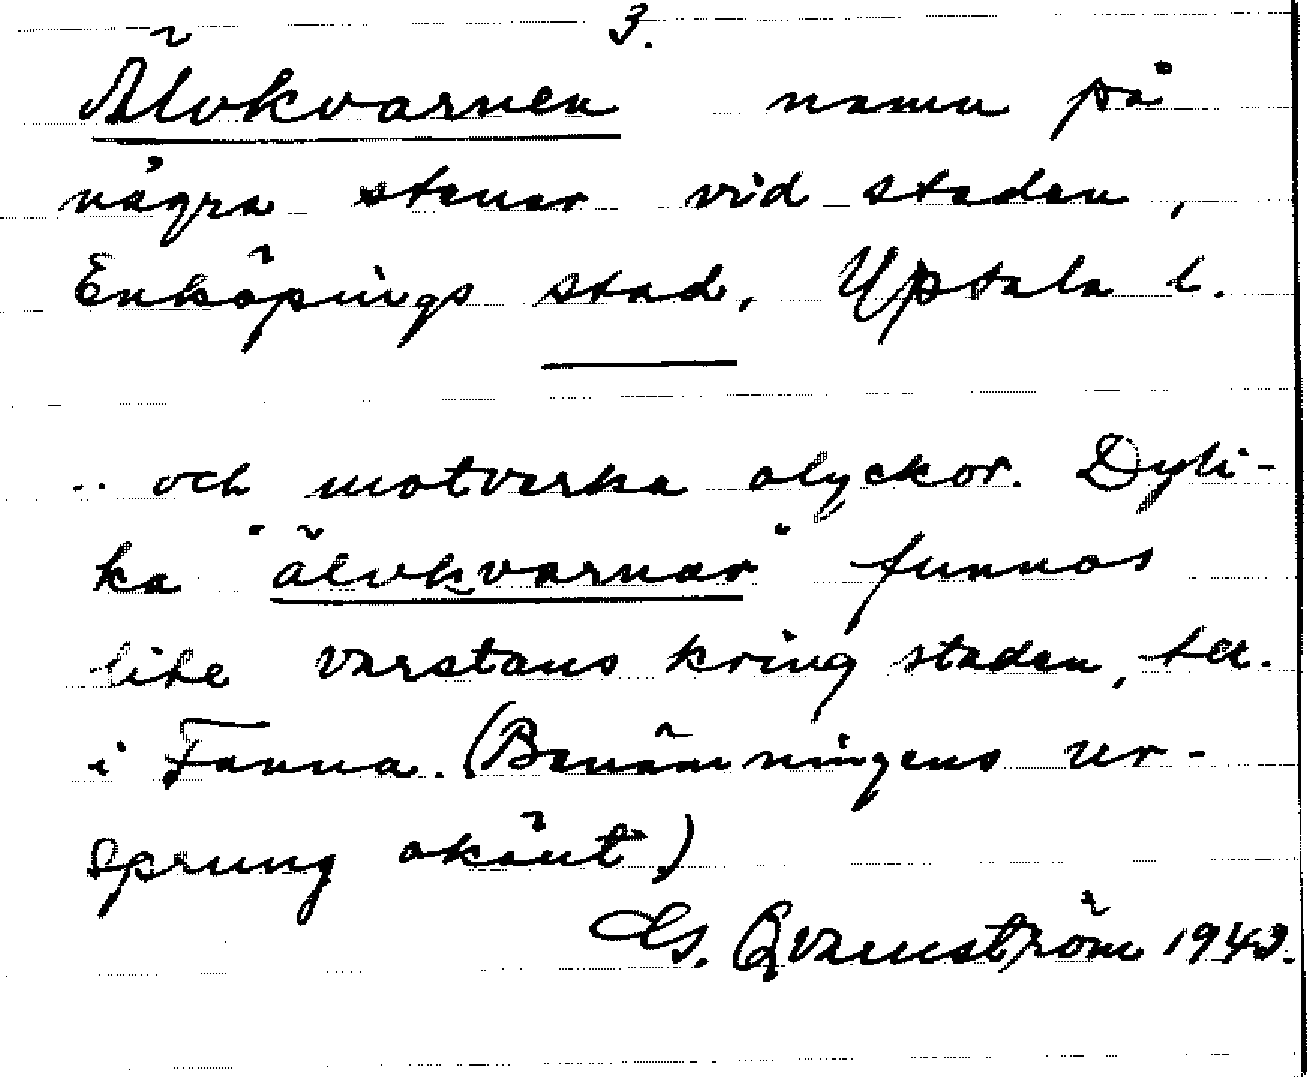 3.
Älvkvarnen namn på
några stenar vid staden,
Enköpings stad, Uptala l.
.. och motverka olyckor. Dyli-
ka "älvkvarnar" funnos
lite varstans kring staden, t.ex.
i Fanna. (Benämningens ur-
sprung okänt)
G. Qvarnström 1943.